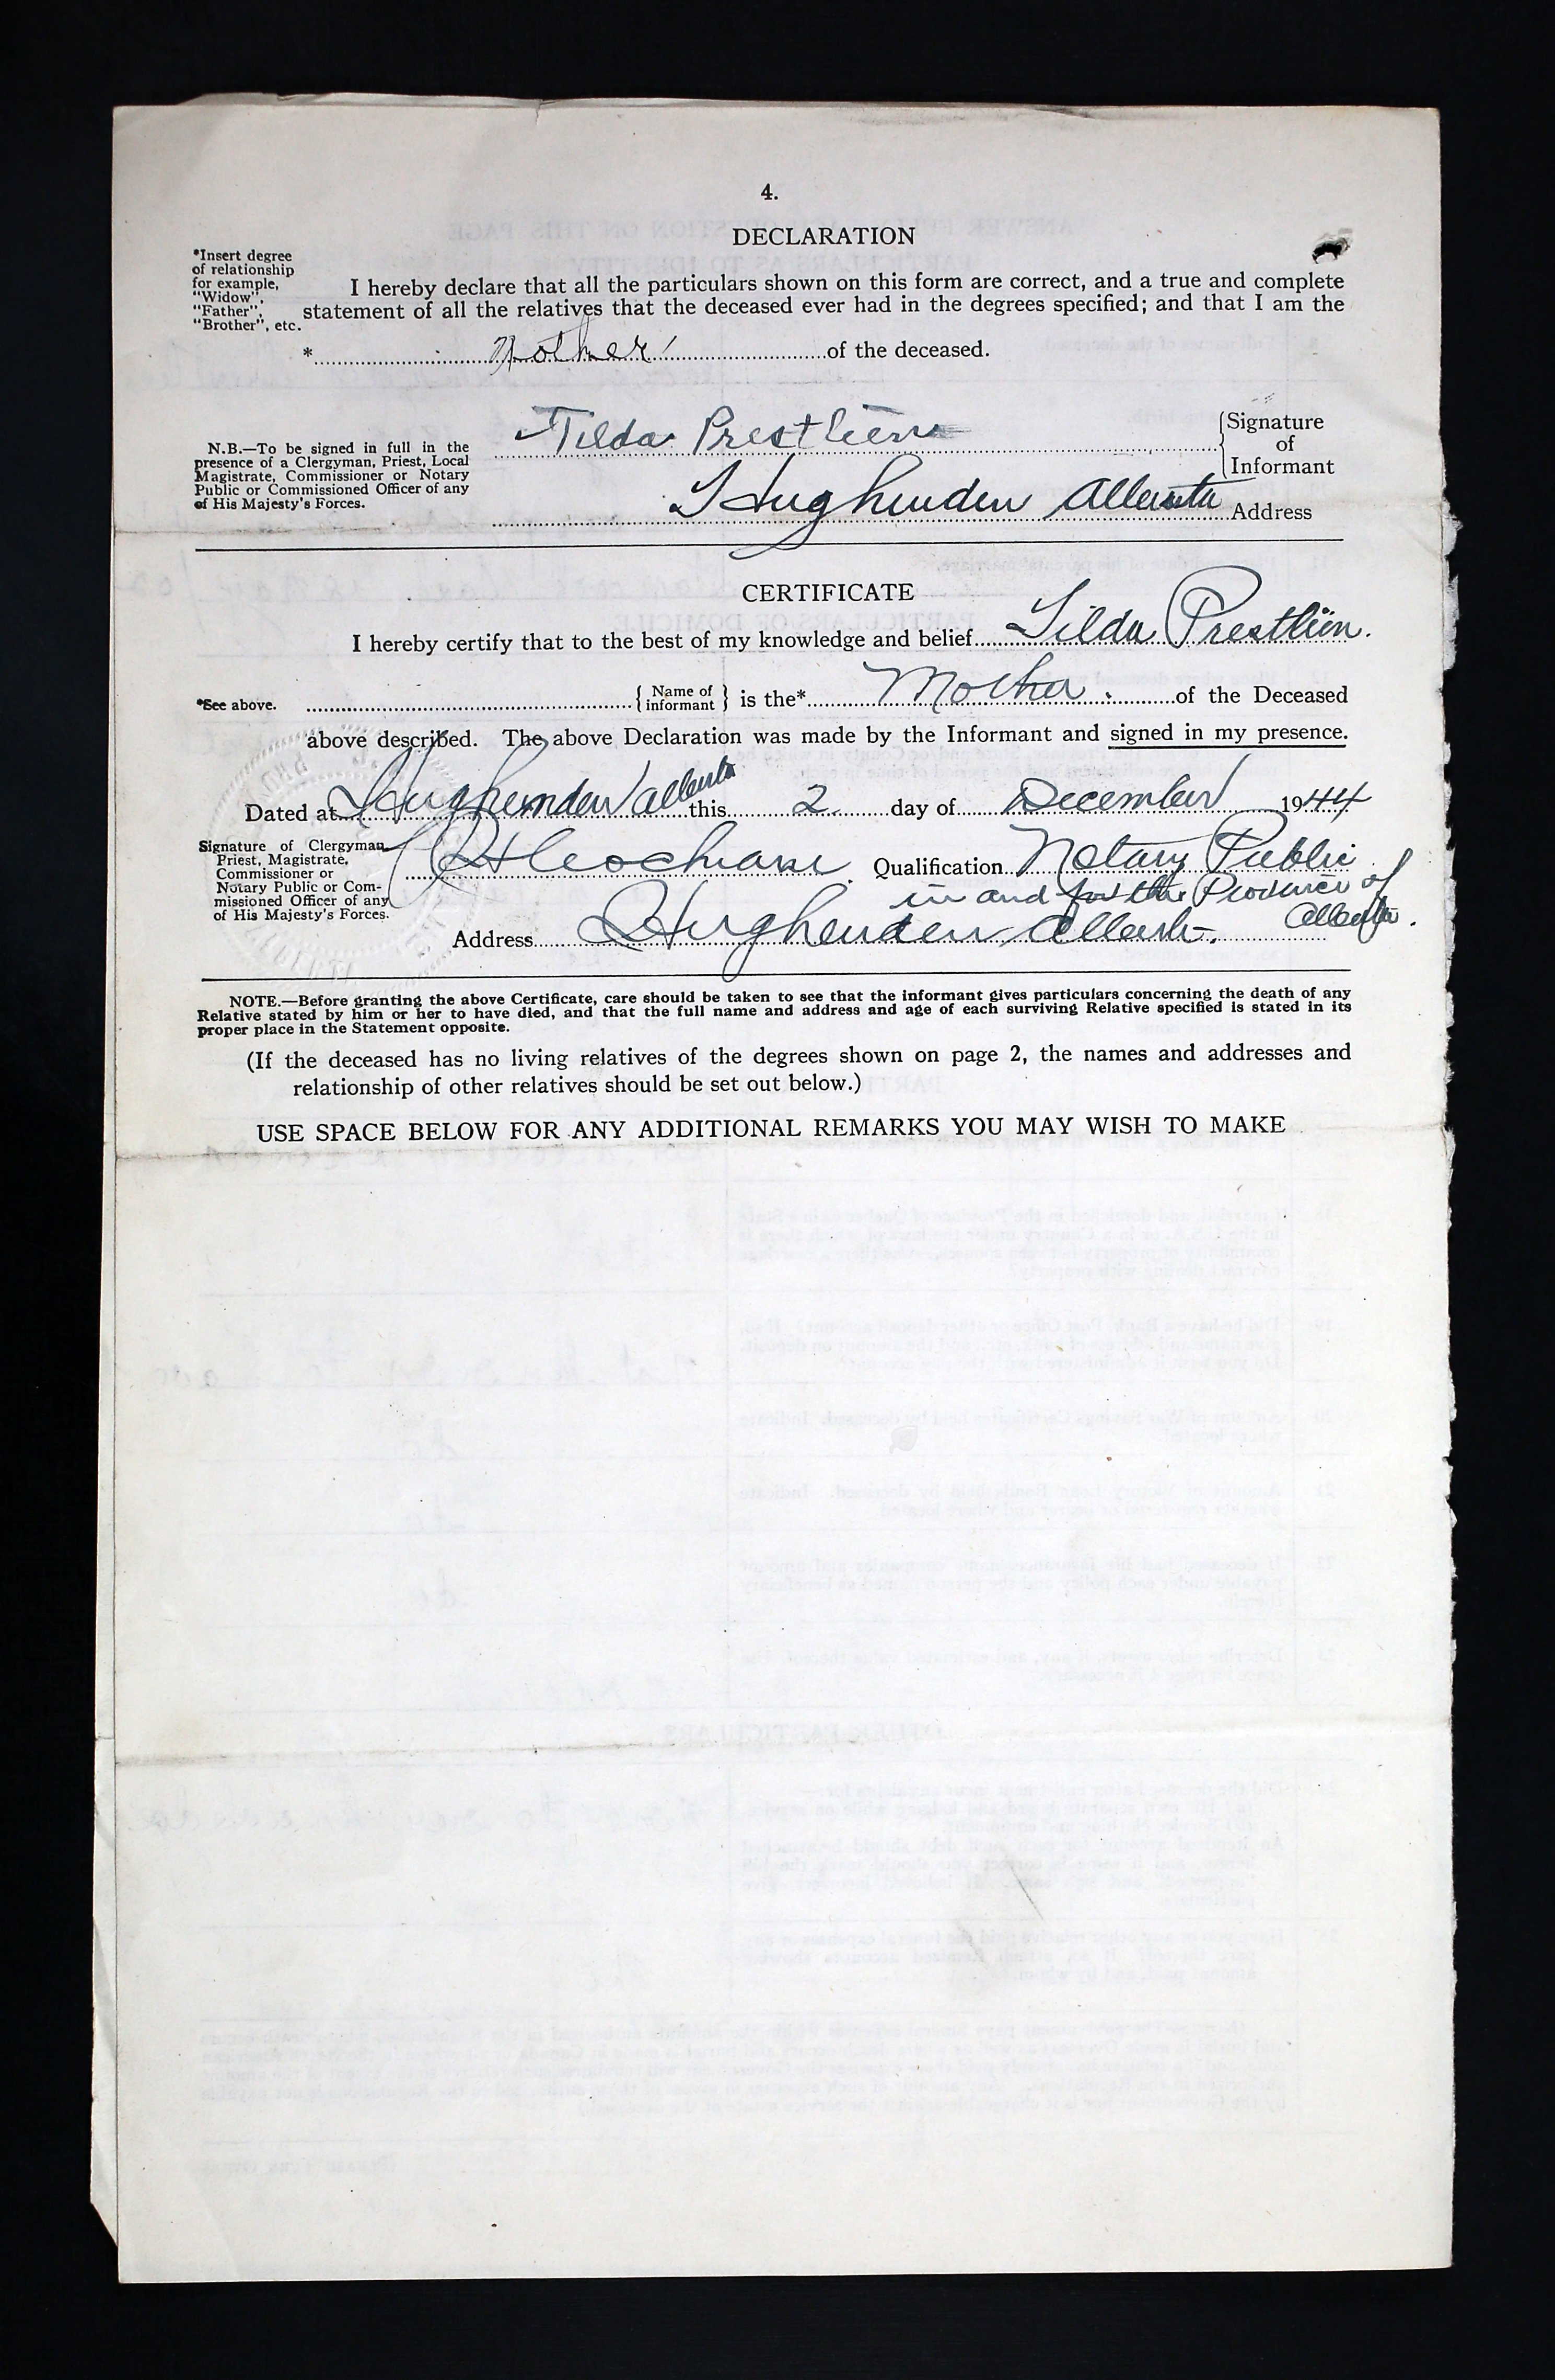 4.
DECLARATION
*Insert degree
of relationship
for example,
"Widow",
"Father",
"Brother", etc.
I hereby declare that all the particulars shown on this form are correct, and a true and complete
statement of all the relatives that the deceased ever had in the degrees specified; and that I am the
* Mother of the deceased.
N.B.—To be signed in full in the
presence of a Clergyman, Priest, Local
Magistrate, Commissioner or Notary
Public or Commissioned Officer of any
of His Majesty's Forces.
Tilda Prestlien
Signature
of
Informant
Hughenden Alberta Address
CERTIFICATE
I hereby certify that to the best of my knowledge and belief Tilda Prestlien.
*See above. { Name of informant } is the* Mother. of the Deceased
above described. The above Declaration was made by the Informant and signed in my presence.
Dated at Hughenden Alberta this 2 day of December 1944
Signature of Clergyman
Priest, Magistrate,
Commissioner or
Notary Public or Com-
missioned Officer of any
of His Majesty's Forces.
Qualification Notary Public
in and for the Province of
Alberta.
Address Hughenden, Alberta.
NOTE.—Before granting the above Certificate, care should be taken to see that the informant gives particulars concerning the death of any
Relative stated by him or her to have died, and that the full name and address and age of each surviving Relative specified is stated in its
proper place in the Statement opposite.
(If the deceased has no living relatives of the degrees shown on page 2, the names and addresses and
relationship of other relatives should be set out below.)
USE SPACE BELOW FOR ANY ADDITIONAL REMARKS YOU MAY WISH TO MAKE